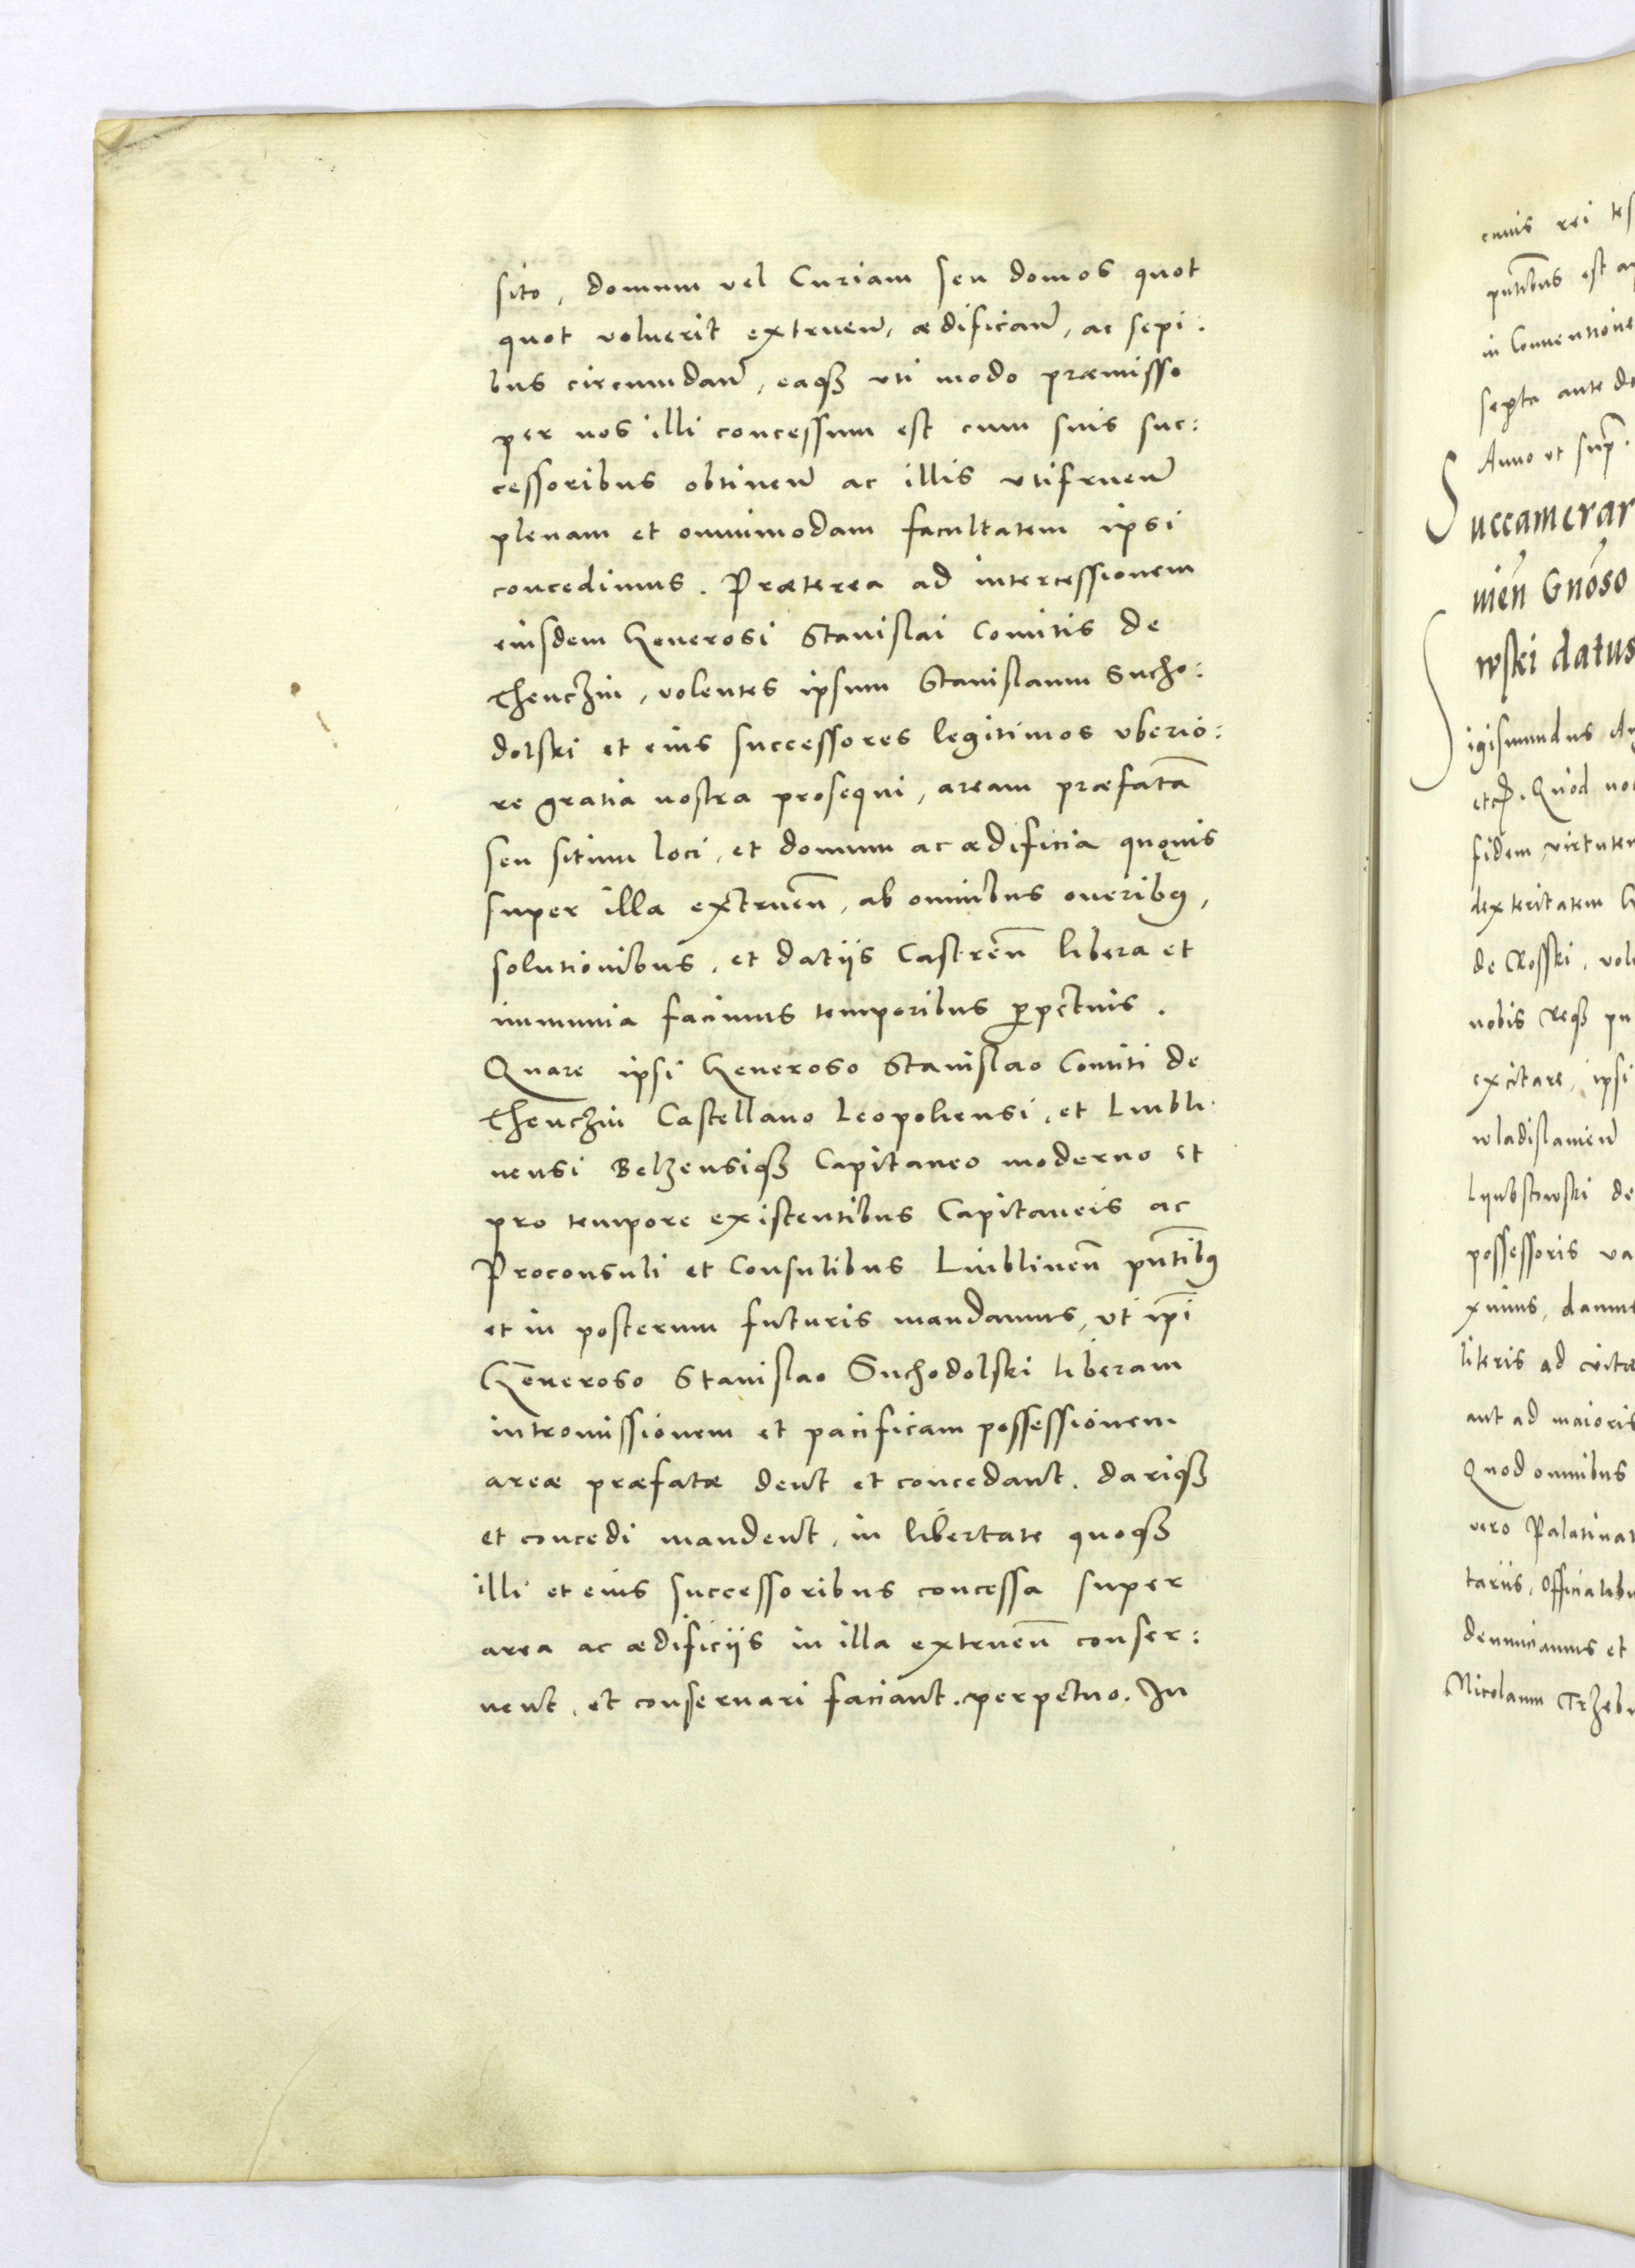 sito, domum vel Curiam seu domos quot
quot voluerit extruen̄, ædifican̄, ac sepi:
bus circumdan̄, eaqꝫ vti modo præmisso
per nos illi concessum est cum suis suc:
cessoribus obtinen̄ ac illis vtifruen̄
plenam et omnimodam facultatem ipsi
concedimus. Præterea ad intercessionem
eiusdem Generosi Stanislai Comitis de
Thenczin, volentes ipsum Stanislaum Sucho:
dolski et eius successores legitimos vberio:
re gratia nostra prosequi, aream præfatā
seu situm loci, et domum ac ædificia quęuis
super illa extruen̄, ab omnibus oneribꝰ,
solutionibus, et datijs Castren̄ libera et
immunia facimus temporibus ꝑpetuis.
Quare ipsi Generoso Stanislao Comiti de
Thenczin Castellano Leopoliensi, et Lubli.
nensi Belzensiqꝫ Capitaneo moderno et
pro tempore existentibus Capitaneis ac
Proconsuli et Consulibus Lublinen̄ pn̄tibꝰ
et in posterum futuris mandamus, vt ip̄i
Generoso Stanislao Suchodolski liberam
intromissionem et pacificam possessionem
areæ præfatæ dent et concedant. dariqꝫ
et concedi mandent, in libertate quoqꝫ
illi et eius successoribus concessa super
area ac ædificijs in illa extruen̄ conser:
uent, et conseruari faciant. perpetuo. In
cuius rei
pn̄tibus est
in Conuentione
septa ante
Anno vt sup̄.
Succamerar
mien̄ Gnōso
wski datus
Sigismundus
etc. Quod
fidem, virtutem
dexteritatem
de Rosski,
nobis Reqꝫ
excitare, ipsi
wladislauien̄
Lyubstowski de
possessoris va
ximus, damus
literis ad vitæ
aut ad maioris
Quod omnibus
vero Palatinat
tariis, Officialibu
denunciamus et
Nicolaum Trzeb